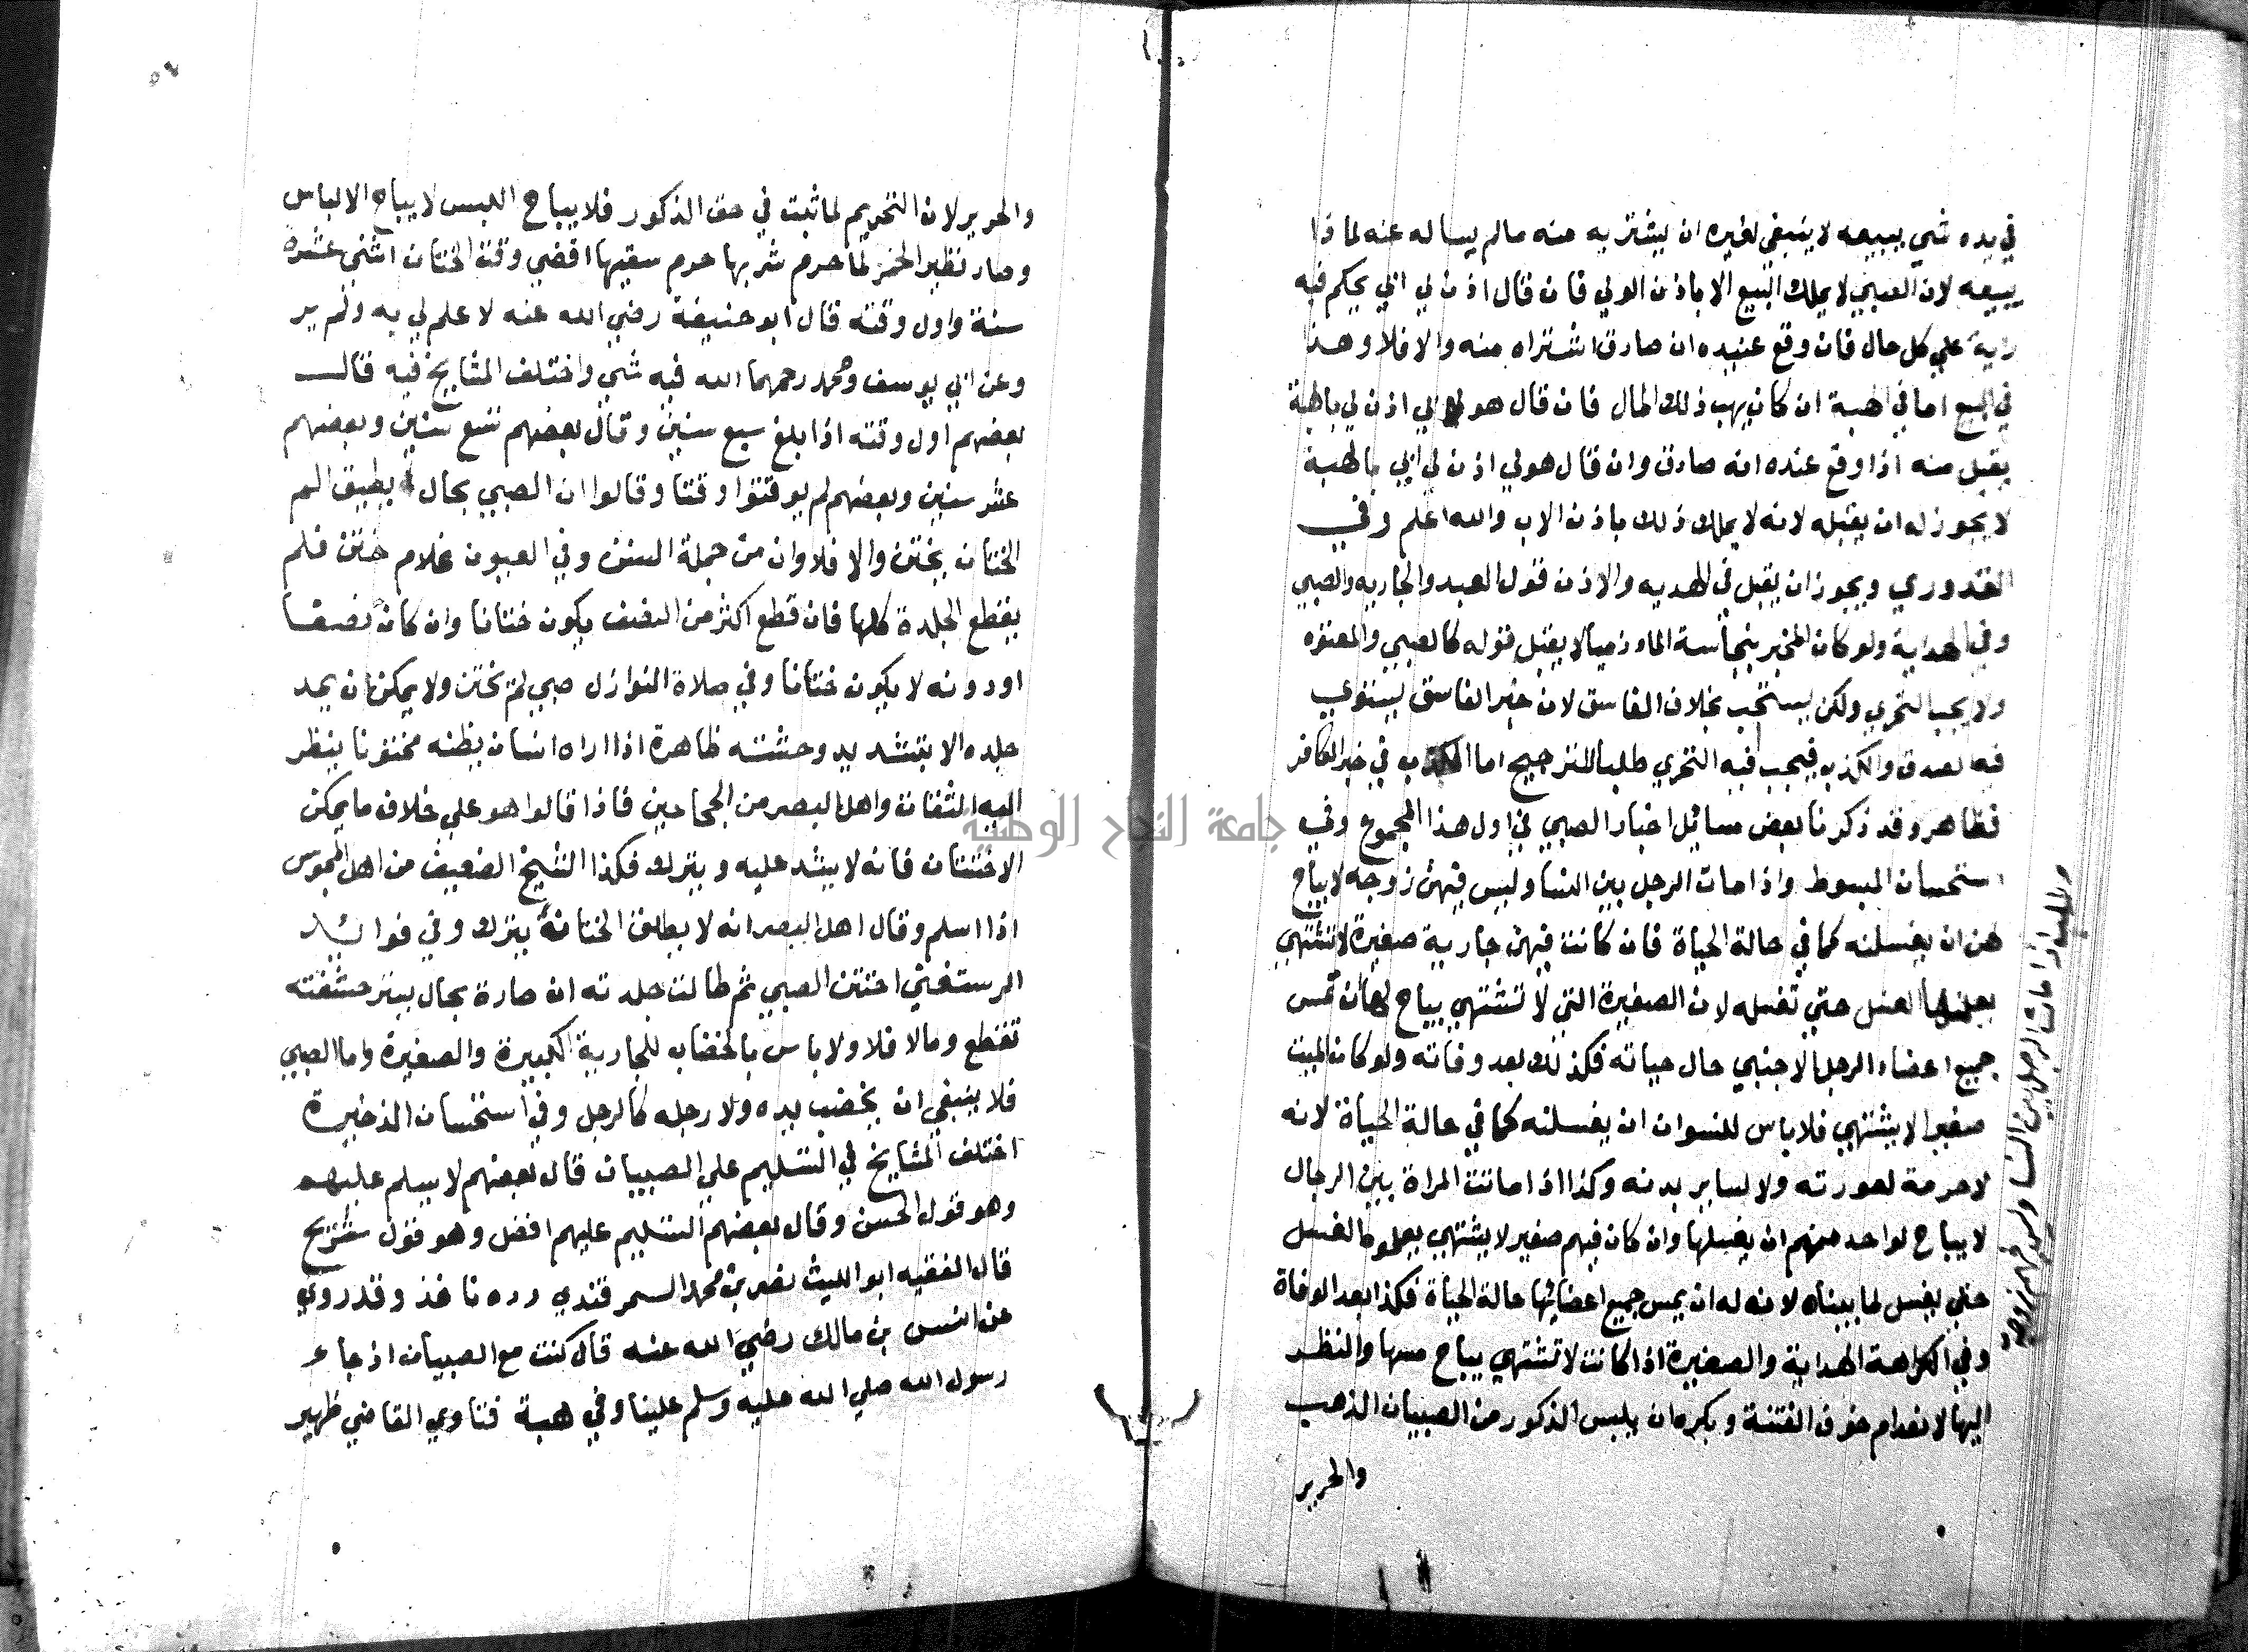 في يده شي يبيعه لا ينبغي لغيره ان يشتريه منه مالم يساله عنه لماذا
يبيعه لان الصبي لا يملك البيع الا باذن الولي فان قال اذن لي ابي يحكم فيه
رايه علي كل حال فان وقع عنده ان صادق اشتراه منه والا فلا وهذا
في البيع اما في الهبة ان كان يهب ذلك المال فان قال هو لابي اذن لي بالهبة
يقبل منه اذا وقع عنده انه صادق وان قال هو لي اذن لي ابي بالهبة
لا يجوز له ان يقبله لانه لا يملك ذلك باذن الاب والله اعلم وفي
القدوري ويجوز ان يقبل في الهديه والاذن قول العبد والجاريه والصبي
وفي الهداية ولو كان المخبر بنجاسة الماء ذميا لا يقبل قوله كالصبي والمعتوه
ولا يجب التحري ولكن يستحب بخلاف الفاسق لان خبر الفاسق يستوي
فيه الصدق والكذب فيجب فيه التحري طلبا للترجيح اما الكذب في خبر الكافر
فظاهر وقد ذكرنا بعض مسائل اخبار الصبي في اول هذا المجموع وفي
استحسان المبسوط واذا مات الرجل بين النسا وليس فيهن زوجه لا يباح
لهن ان يغسلنه كما في حالة الحياة فان كانت فيهن جارية صغيرة لا تشتهي
يعلمنها الغسل حتي تغسله لان الصغيرة التي لا تشتهي يباح لها ان تمس
جميع اعضاء الرجل الاجنبي حال حياته فكذلك بعد وفاته ولو كان الميت
صغيرا لا يشتهي فلا باس للنسوان ان يغسلنه كما في حالة الحياة لانه
لا حرمة لعورته ولا لساير بدنه وكذا اذا ماتت المراة بين الرجال
لا يباح لواحد منهم ان يغسلها وان كان فيهم صغير لا يشتهي يعلموه الغسل
حتي يغسل لما بيناه لانه له ان يمس جميع اعضائها حالة الحياة فكذا بعد الوفاة
وفي الكراهة الهداية والصغيرة اذا كانت لا تشتهي يباح مسها والنظر
اليها لانعدام خوف الفتنة ويكره ان يلبس الذكور من الصبيان الذهب
والحرير
اذا مات الرجل بين النسا وليس فيهن زوجه
والحرير لان التحريم لما ثبت في حق الذكور فلا يباح اللبس لا يباح الالباس
وصار نظير الخمر لما حرم شربها حرم سقيها اقضي وقت الختان اثني عشرة
سنة واول وقته قال ابو حنيفة رضي الله عنه لا علم لي به ولم ير
وعن ابي يوسف ومحمد رحمهما الله فيه شي واختلف المشايخ فيه قال
بعضهم اول وقته اذا بلغ سبع سنين وقال بعضهم تسع سنين وبعضهم
عشر سنين وبعضهم لم يوقتوا وقتا وقالوا ان الصبي بحال يطيق الم
الختان يختن والا فلا وان من جملة السنن وفي العيون غلام ختن فلم
يقطع الجلدة كلها فان قطع اكثر من النصف يكون ختانا وان كان نصفا
او دونه لا يكون ختانا وفي صلاة النوازل صبي لم يختن ولا يمكن ان يمد
جلده الا بتشديد وحشفته ظاهرة اذا اراه انسان يظنه مختونا ينظر
اليه الثقات واهل البصر من الحجامين فاذا قالوا هو علي خلاف ما يمكن
الاختتان فانه لا يشد عليه ويترك فكذا الشيخ الضعيف من اهل المجوس
اذا اسلم وقال اهل البصر انه لا يطيق الختانة يترك وفي فوائد
الرستغني اختتن الصبي ثم طالت جلدته ان صارة بحال يستر حشفته
تقطع ومالا فلا ولا باس بالخضاب للجارية الكبيرة والصغيرة واما الصبي
فلا ينبغي ان يخضب يده ولا رجله كالرجل وفي استحسان الذخيرة
اختلف المشايخ في التسليم علي الصبيان قال بعضهم لا يسلم عليهم
وهو قول الحسن وقال بعضهم التسليم عليهم افضل وهو قول شريح
قال الفقيه ابو الليث نصر بن محمد السمرقندي رده نافذ وقد روي
عن انس بن مالك رضي الله عنه قال كنت مع الصبيان اذ جاء
رسول الله صلي الله عليه وسلم علينا وفي هبة فتاوي القاضي ظهير
جامعة النجاح الوطنية